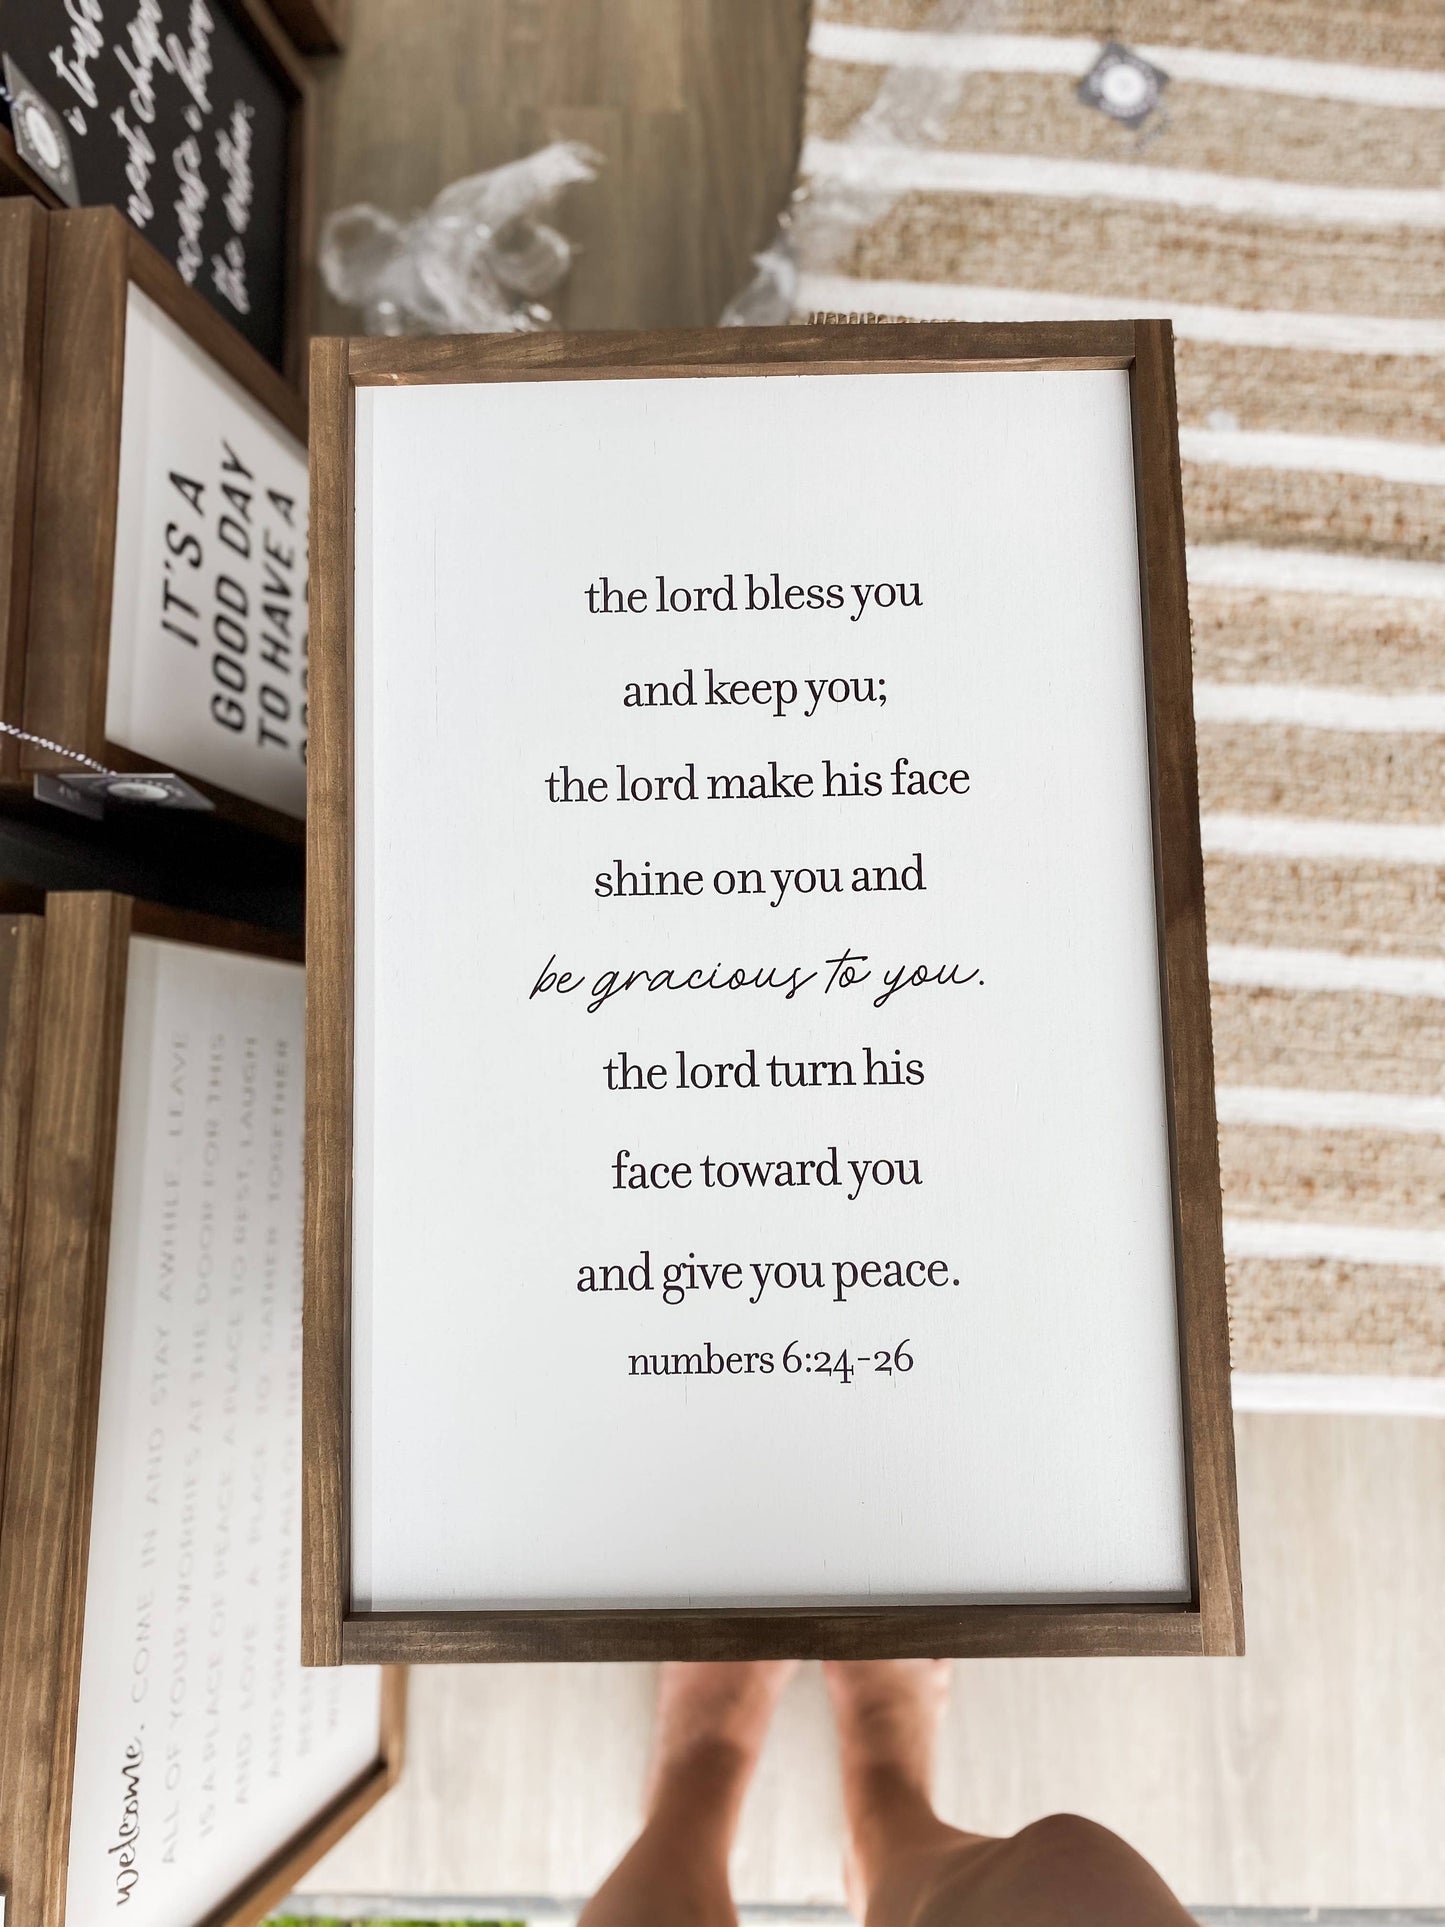 the lord bless you
and keep you;
the lord make his face
shine on you and
be gracious to you.
the lord turn his
face toward you
and give you peace.
numbers 6:24-26
next
the other.
IT'S A
GOOD DAY
TO HAVE A
welcome. COME IN AND STAY AWHILE. LEAVE
ALL OF YOUR WORRIES AT THE DOOR FOR THIS
IS A PLACE OF PEACE, A PLACE TO REST, LAUGH
AND LOVE. A PLACE TO GATHER TOGETHER
AND SHARE IN ALL OF THE